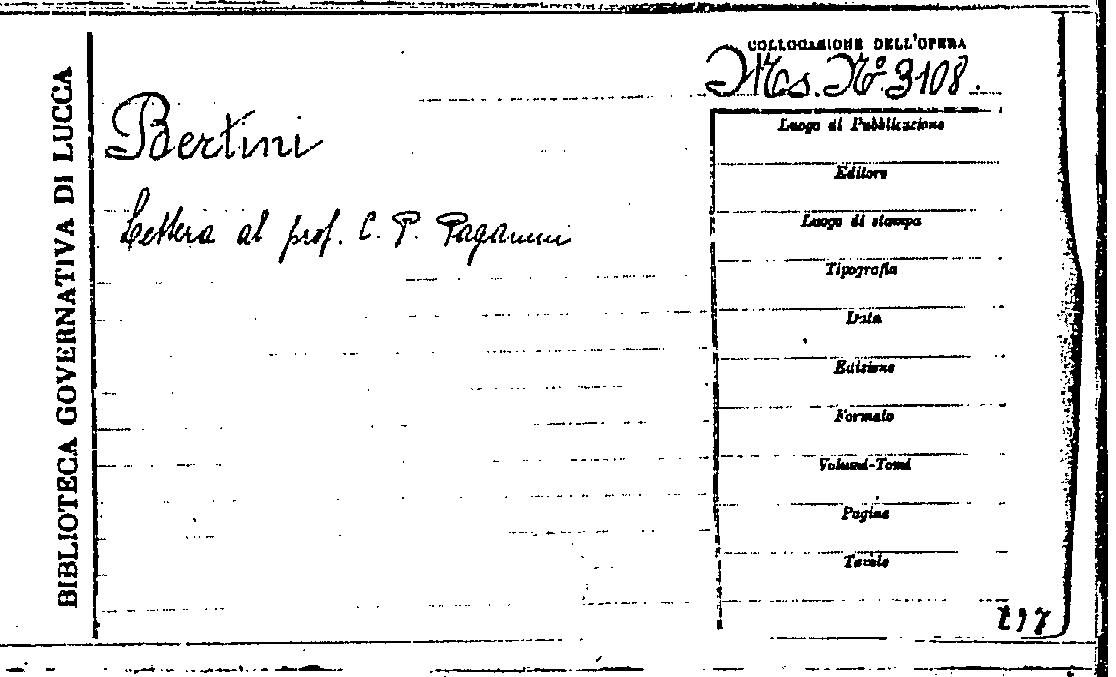 BIBLIOTECA GOVERNATIVA DI LUCCA
COLLOCAZIONE DELL'OPERA
Ms. Nº 3108.
Bertini
Lettera al prof. C. P. Paganini
Luogo di Pubblicazione
Editore
Luogo di stampa
Tipografia
Data
Edizione
Formato
Volumi-Tomi
Pagine
Tavole